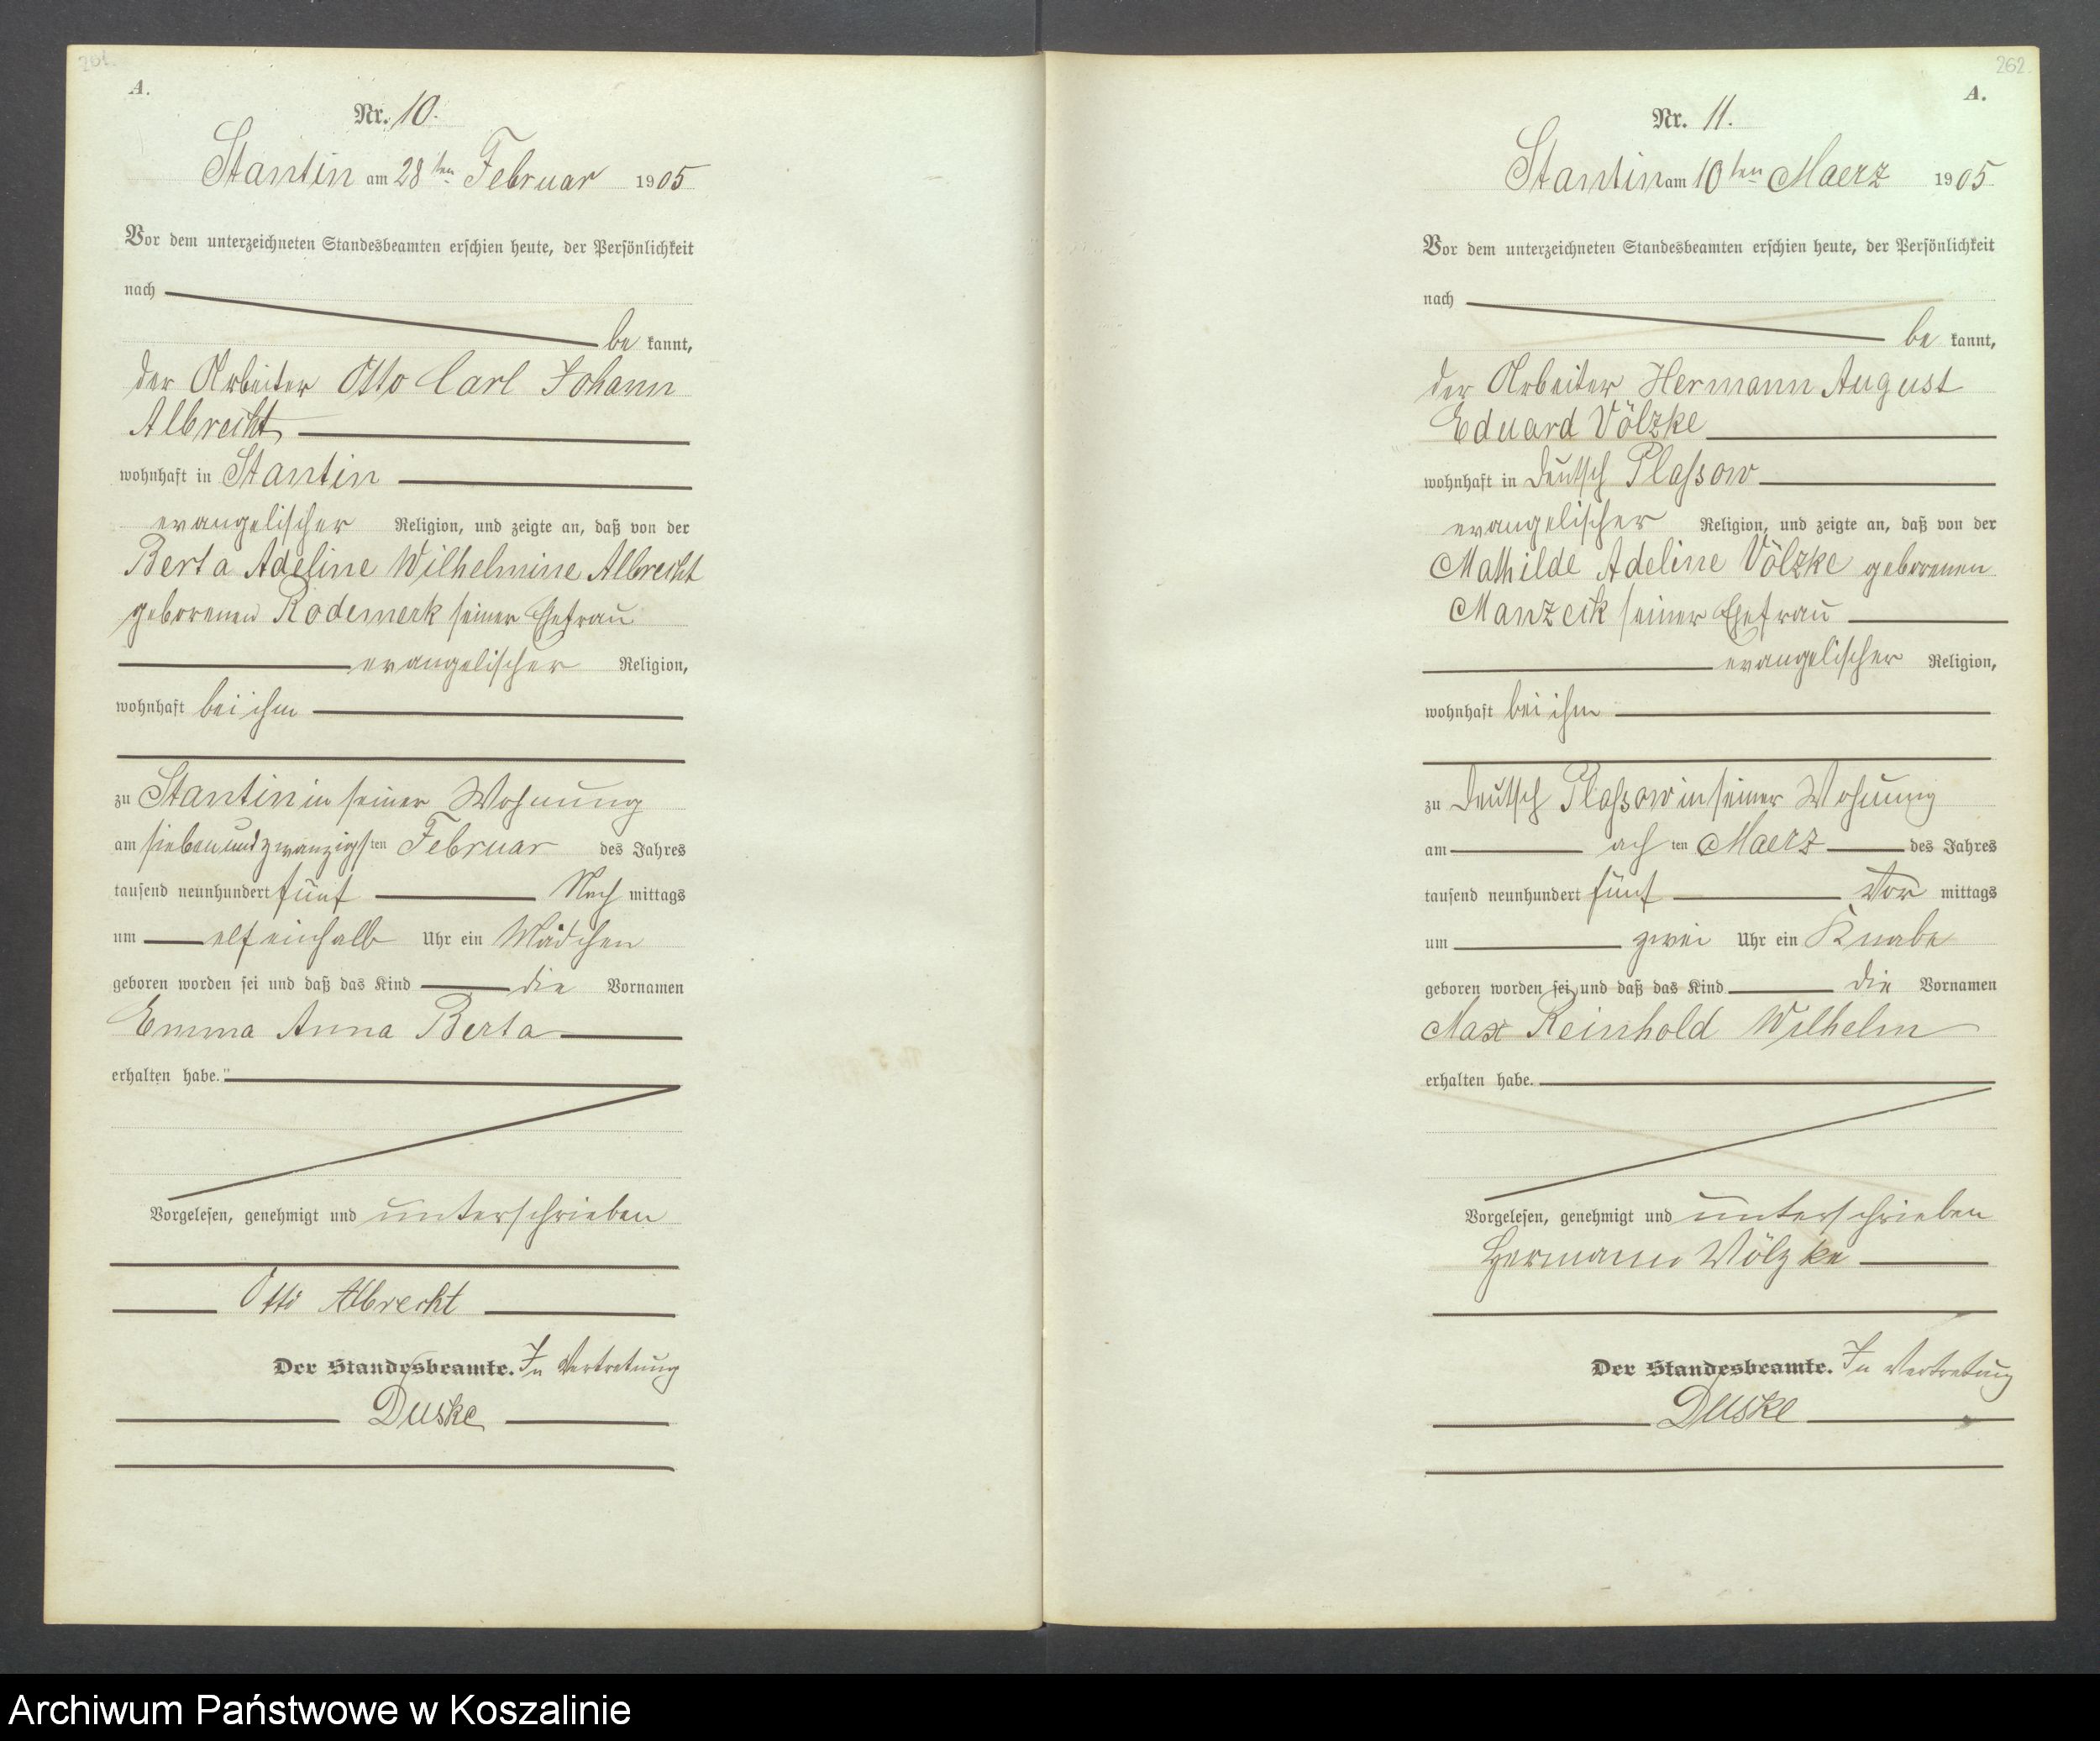 261.
A.
Nr. 10.
Stantin am 28ten Februar 1905
Vor dem unterzeichneten Standesbeamten erschien heute, der Persönlichkeit
nach
be kannt,
der Arbeiter Otto Carl Johann
Albrecht
wohnhaft in Stantin
evangelischer Religion, und zeigte an, daß von der
Berta Adeline Wilhelmine Albrecht
geborenen Rodemerk seiner Ehefrau
evangelischer Religion,
wohnhaft bei ihm
zu Stantin in seiner Wohnung
am siebenundzwanzigsten Februar des Jahres
tausend neunhundert fünf Nach mittags
um elf einhalb Uhr ein Mädchen
geboren worden sei und daß das Kind die Vornamen
Emma Anna Berta
erhalten habe."
Vorgelesen, genehmigt und unterschrieben
Otto Albrecht
Der Standesbeamte. In Vertretung
Duske
262.
A.
Nr. 11.
Stantin am 10ten Maerz 1905
Vor dem unterzeichneten Standesbeamten erschien heute, der Persönlichkeit
nach
be kannt,
der Arbeiter Hermann August
Eduard Völzke
wohnhaft in Deutsch Plassow
evangelischer Religion, und zeigte an, daß von der
Mathilde Adeline Völzke geborenen
Manzeck seiner Ehefrau
evangelischer Religion,
wohnhaft bei ihm
zu Deutsch Plassow in seiner Wohnung
am ach ten Maerz des Jahres
tausend neunhundert fünf Vor mittags
um zwei Uhr ein Knabe
geboren worden sei, und daß das Kind die Vornamen
Max Reinhold Wilhelm
erhalten habe.
Vorgelesen, genehmigt und unterschrieben
Hermann Völzke
Der Standesbeamte. In Vertretung
Duske
Archiwum Państwowe w Koszalinie